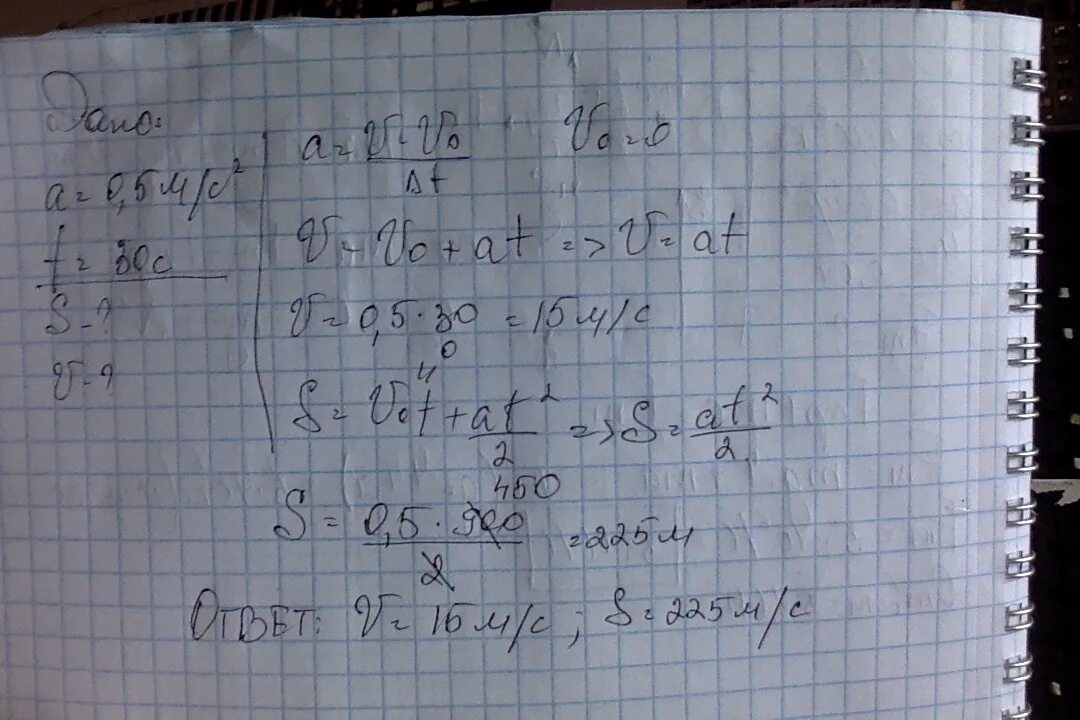 Дано:
a = 0,5 м/с²
t = 30с
S - ?
V - ?
a = V - V₀ / Δt    V₀ = 0
V = V₀ + at => V = at
V = 0,5 · 30 = 15 м/с
S = V₀t + at²/2 => S = at²/2
0
450
S = 0,5 · 900 / 2 = 225 м
Ответ: V = 15 м/с ; S = 225 м/с